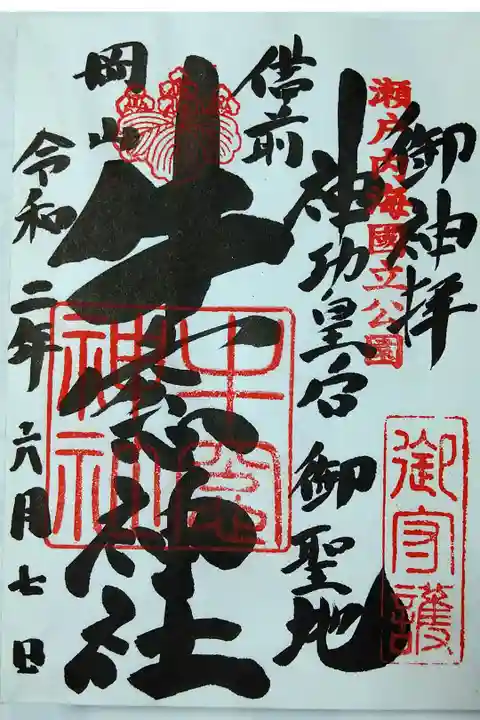 御神拝
瀬戸内海國立公園
神功皇后 御聖地
備前
牛窓神社
岡山
令和 二年 六月 七日
牛窓
神社
御守護